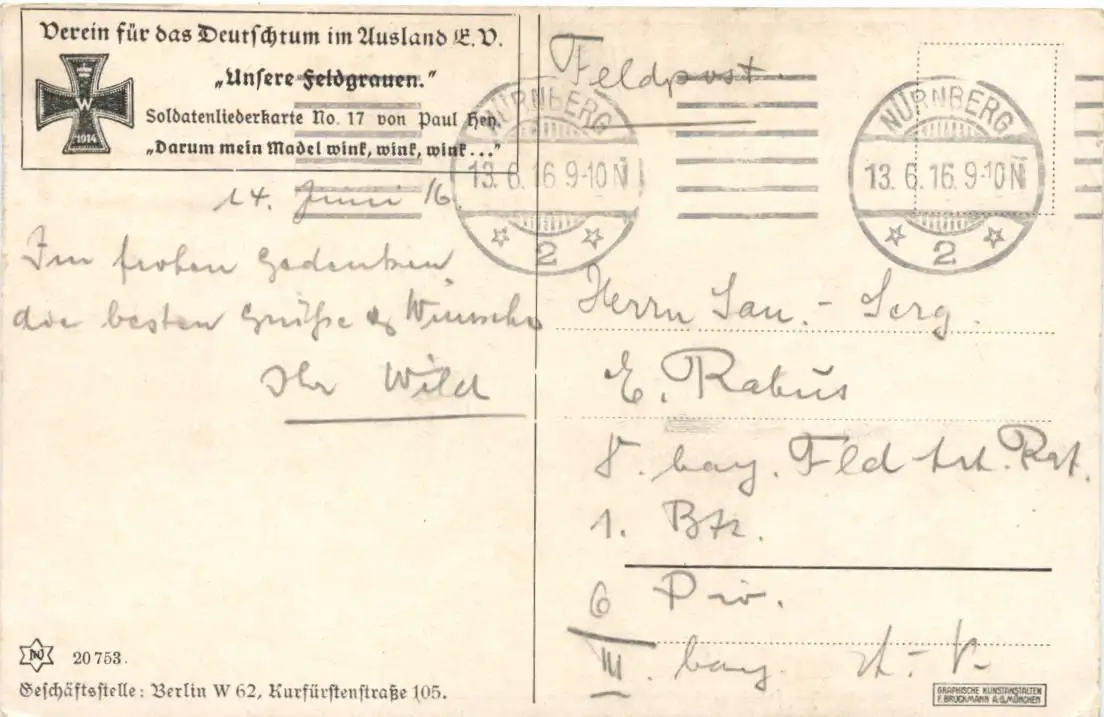 Verein für das Deutschtum im Ausland E.V.
„Unsere Feldgrauen."
Soldatenliederkarte No. 17 von Paul Hey.
„Darum mein Madel wink, wink, wink..."
W
1914
14. Juni 16.
Im frohen Gedenken
die besten Grüße & Wünsche
Ihr Wild
Feldpost.
NÜRNBERG
13.6.16.9-10N
2
NÜRNBERG
13.6.16.9-10N
2
Herrn San.-Serg.
E. Rabus
8. bay. Feld Art. Rgt.
1. Btr.
6 Div.
III. bay.
20753.
Geschäftsstelle: Berlin W 62, Kurfürstenstraße 105.
GRAPHISCHE KUNSTANSTALTEN
F. BRUCKMANN A.G. MÜNCHEN